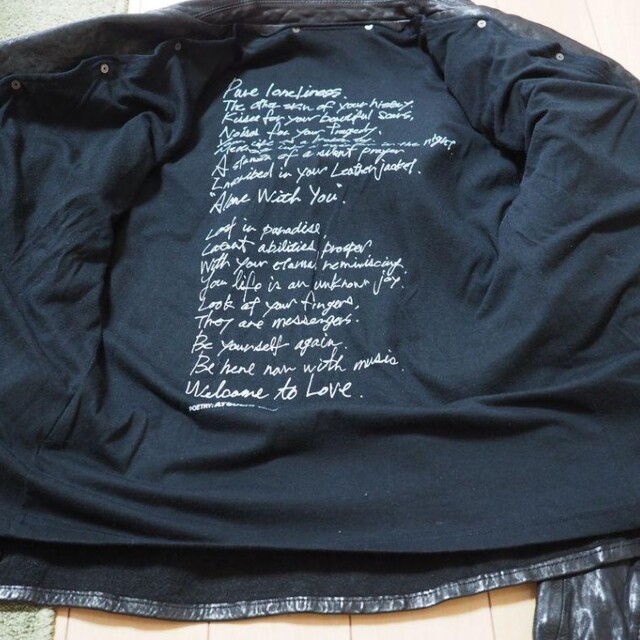 Pure loneliness.
The other skin of your history.
Kisses for your beautiful scars,
Noises for your tragedy.
in one night
A stanza of a silent prayer
Inscribed in your Leather Jacket.
"Alone With You".
Lost in paradise
Latent abilities prosper
With your clams reminiscing.
You life is an unknown joy.
Look at your fingers,
They are messengers.
Be yourself again.
Be here now with music.
Welcome to Love.
POETRY: